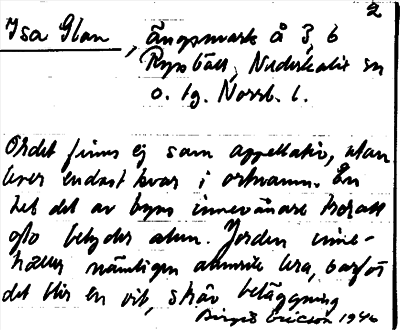 2
Isa Glan, ängsmark å 3, 6
Rysbält, Nederkalix sn
o. tg. Norrb. l.
Ordet finns ej som appellativ, utan
lever endast kvar i ortnamn. En
del det av byns innevånare tror att
glo betyder alun. Jorden inne-
håller nämligen alunrik lera, varför
det blir en vit, skär beläggning
Birgit Ericson 1946